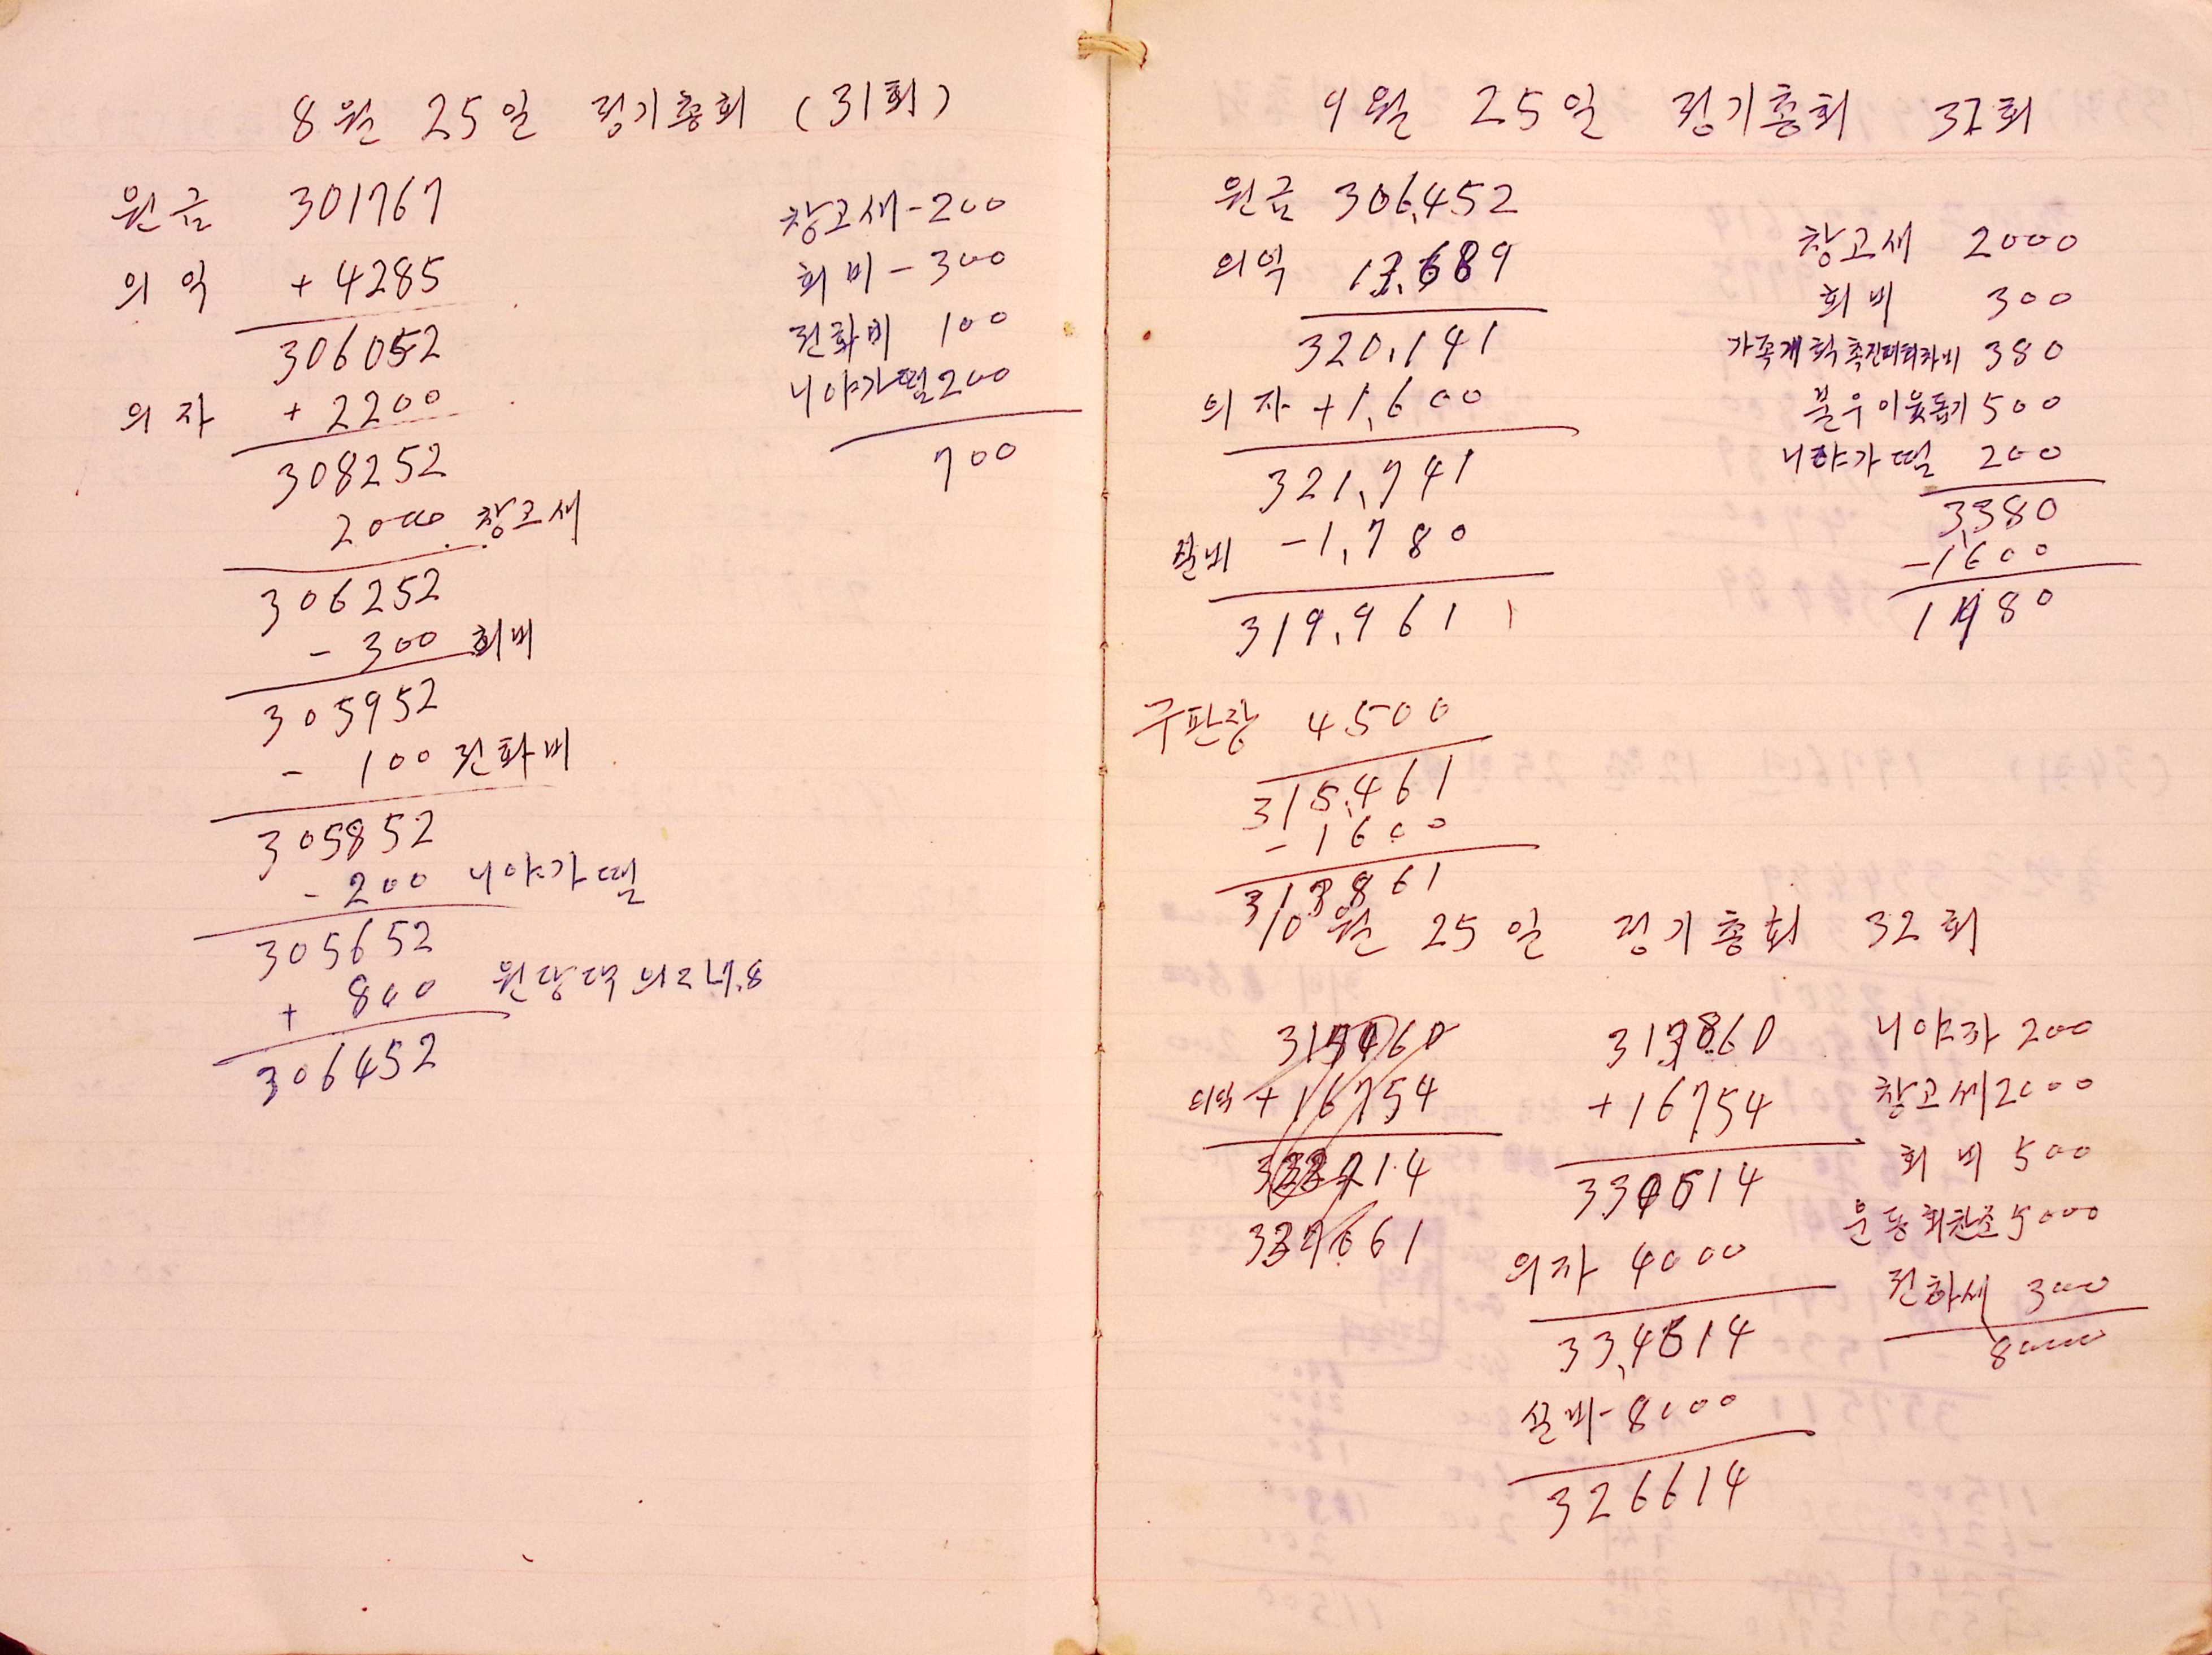 8월 25일 정기총회 (31회)
원금 301767
의익 +4285
306052
의자 +2200
308252
2000 창고새
306252
-300 회비
305952
-100 전화비
305852
-200 니야가떨
305652
+800
306452
창고새-200
회비-300
전화비 100
니야가떨200
700
9월 25일 정기총회 32회
원금 306,452
의익 13,689
320,141
의자 +1,600
321,741
-1,780
319,961
창고새 2000
회비 300
가족계획촉진대회차비 380
불우이웃돕기 500
니야가떨 200
3,380
-1600
1780
구판장 4500
315,461
-1600
313861
10월 25일 정기총회 32회
의익 +16754
313860
+16754
330614
의자 4000
33,4614
실비-8000
326614
니야자 200
창고세2000
회비 500
운동회찬조5000
전화세 300
8000